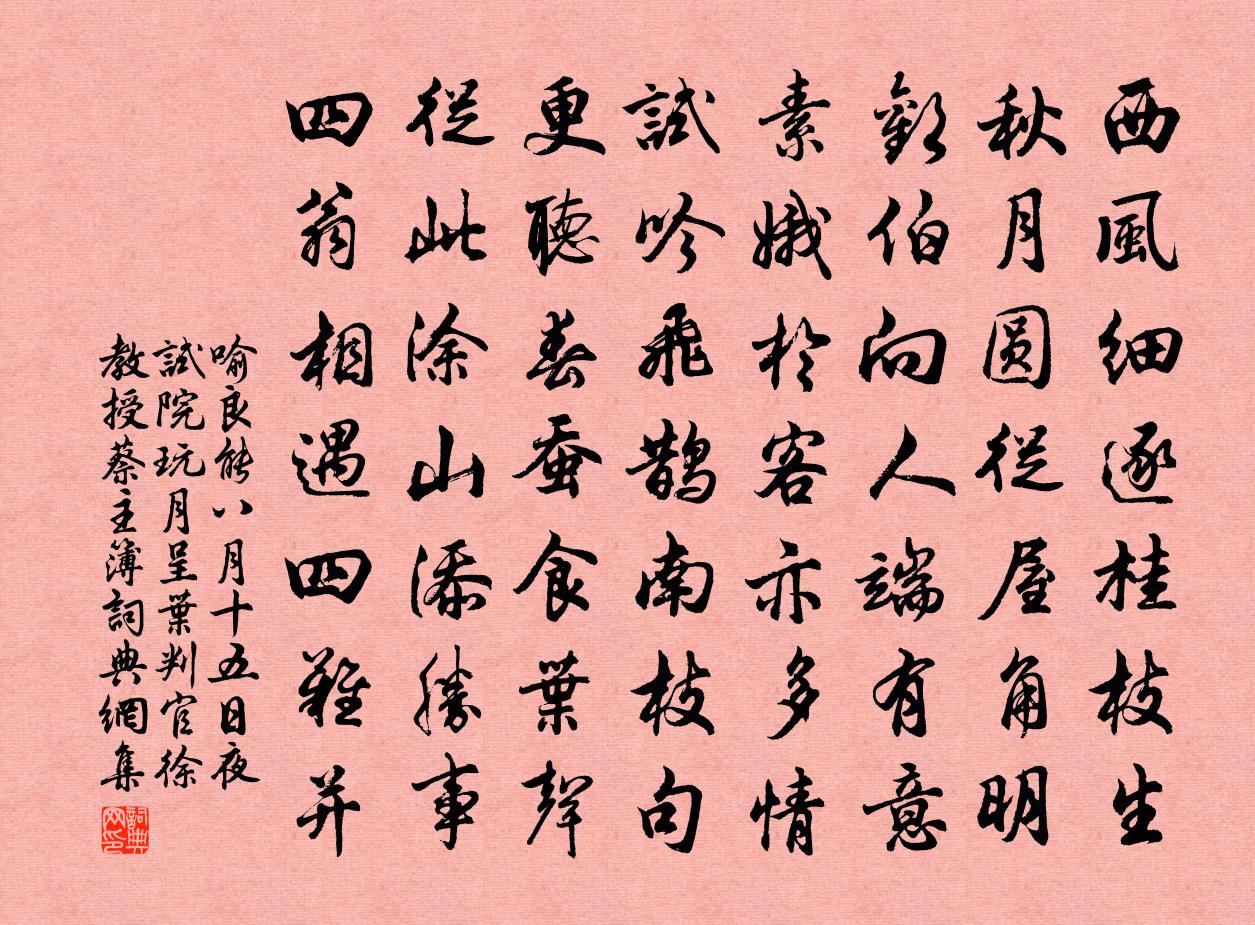 西風細逐桂枝生
秋月圓從屋角明
歡伯向人端有意
素娥於客亦多情
試吟飛鵲南枝句
更聽春蚕食葉聲
從此涂山添勝事
四翁相遇四難并
喻良能八月十五日夜
試院玩月呈葉判官徐
教授蔡主簿詞典網集
詞典网印